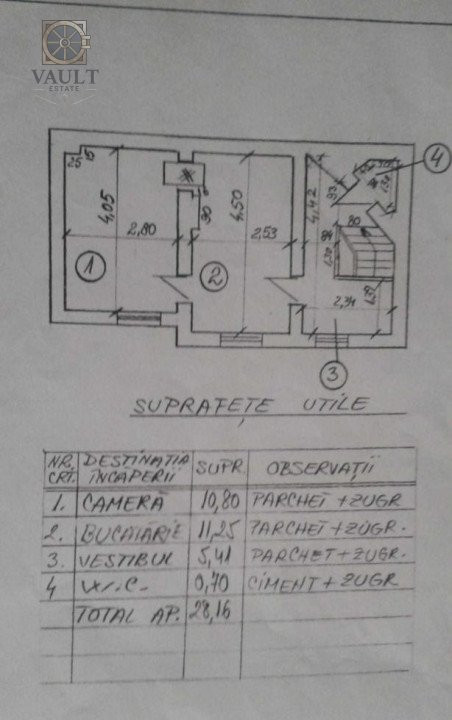 VAULT
ESTATE
25
15
4,05
2,80
1
90
4,50
2,53
2
4,42
93
80
2,34
3
4
SUPRAFEȚE UTILE
NR. CRT. DESTINAȚIA ÎNCĂPERII SUPR. OBSERVAȚII
1. CAMERĂ 10,80 PARCHET + ZUGR
2. BUCĂTĂRIE 11,25 PARCHET + ZUGR.
3. VESTIBUL 5,41 PARCHET + ZUGR.
4 W.C. 0,70 CIMENT + ZUGR
TOTAL AP. 28,16